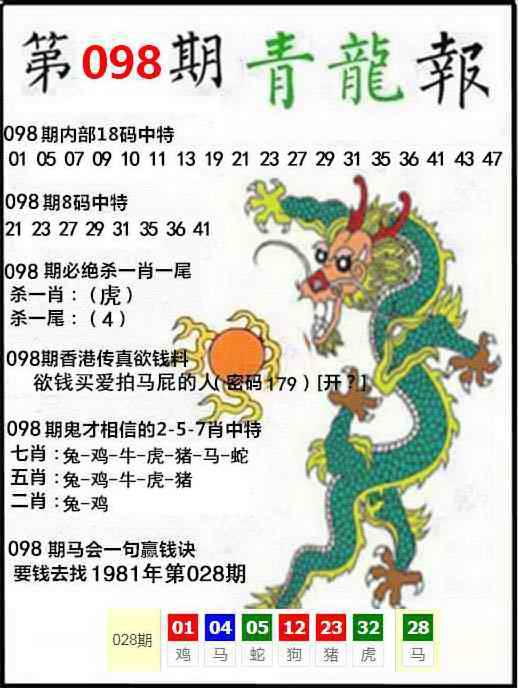 第098期青龍報
098期内部18码中特
01 05 07 09 10 11 13 19 21 23 27 29 31 35 36 41 43 47
098期8码中特
21 23 27 29 31 35 36 41
098 期必绝杀一肖一尾
杀一肖：（虎）
杀一尾：（4）
098期香港传真欲钱料
欲钱买爱拍马屁的人(密码179）[开？]
098期鬼才相信的2-5-7肖中特
七肖：兔-鸡-牛-虎-猪-马-蛇
五肖：兔-鸡-牛-虎-猪
二肖：兔-鸡
098 期马会一句赢钱诀
要钱去找1981年第028期
028期 01 04 05 12 23 32 28
鸡 马 蛇 狗 猪 虎 马